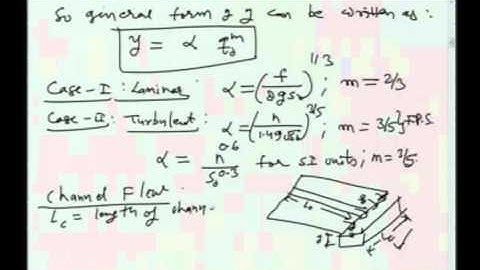 So general form of y can be written as:
y = α q₀ᵐ
Case-I: Laminar α = (f/8gS₀)^1/3; m = 2/3
Case-II: Turbulent: α = (n/1.49√S₀)^3/5; m = 3/5} F.P.S.
α = n^0.6/S₀^0.3 for SI units; m = 3/5.
Channel Flow:
Lc = length of chann.
L₀